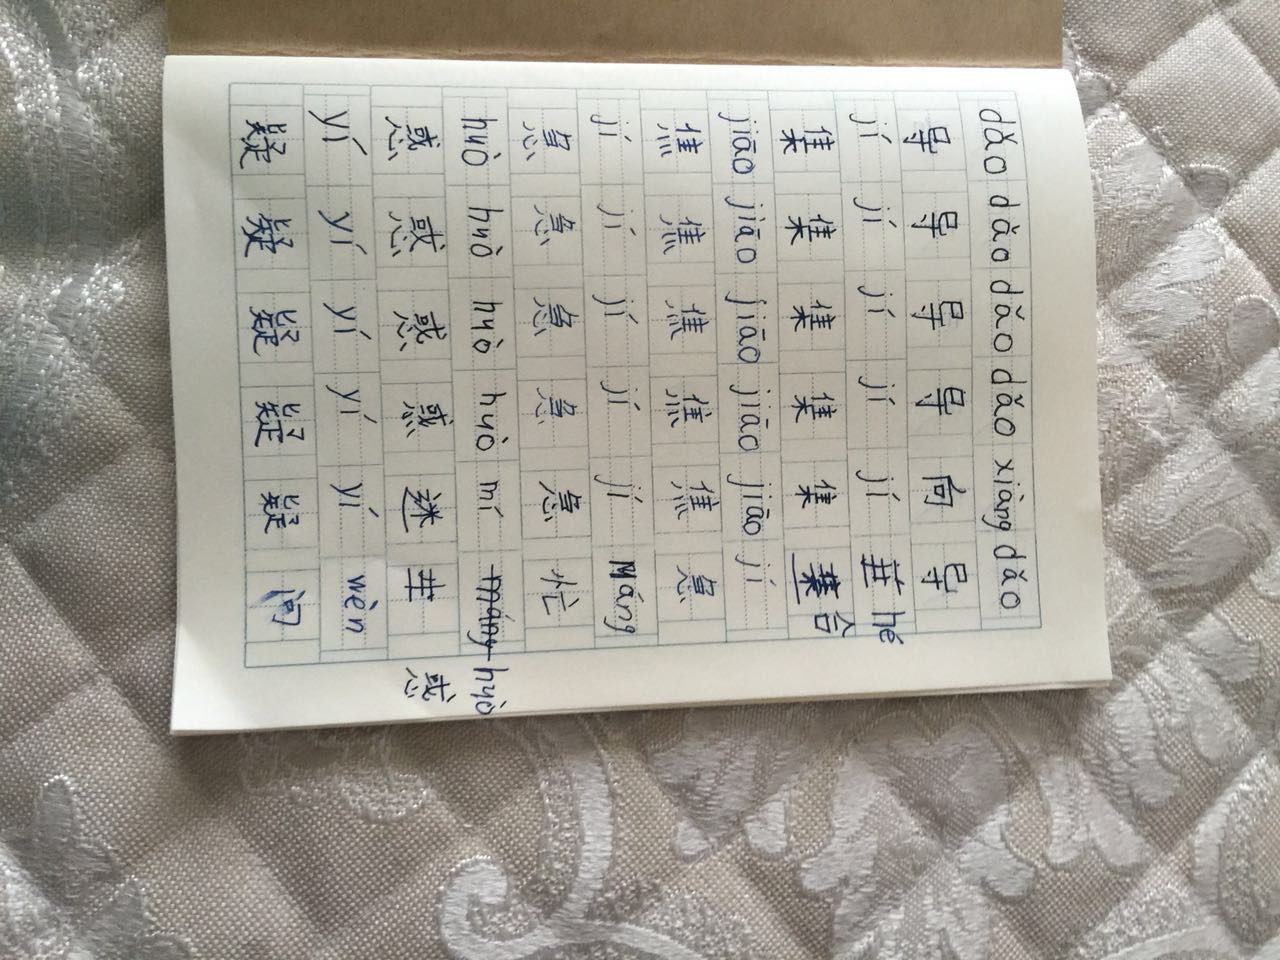 dǎo dǎo dǎo dǎo xiàng dǎo
导 导 导 导 向 导
jí jí jí jí jí hé
集 集 集 集 集 合
jiāo jiāo jiāo jiāo jiāo jí
焦 焦 焦 焦 焦 急
jí jí jí jí jí Máng
急 急 急 急 急 忙
huò huò huò huò mí máng huò
惑 惑 惑 惑 迷 惑
yí yí yí yí yí wèn
疑 疑 疑 疑 疑 问